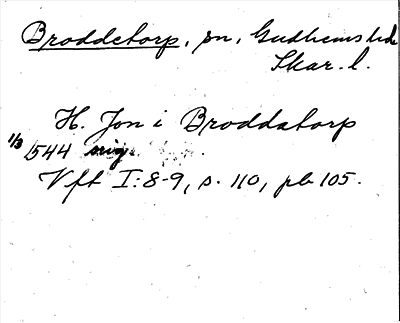 Broddetorp, sn, Gudhems hd
Skar. l.
H. Jon i Broddatorp
1/3 1544 orig.
Vft I: 8-9, s. 110, pb 105.